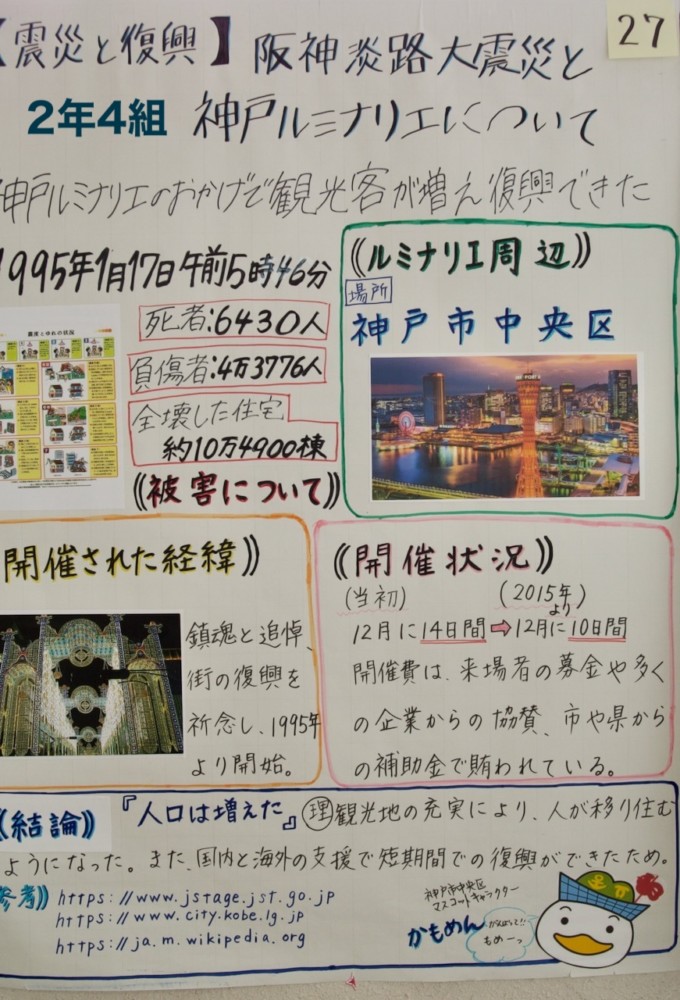 27
【震災と復興】 阪神淡路大震災と
2年4組 神戸ルミナリエについて
神戸ルミナリエのおかげで観光客が増え復興できた
1995年1月17日午前5時46分
死者:6430人
負傷者:4万3776人
全壊した住宅
約10万4900棟
《被害について》
《ルミナリエ周辺》
場所
神戸市中央区
開催された経緯》
鎮魂と追悼、
街の復興を
祈念し、1995年
より開始。
《開催状況》
(当初) (2015年より)
12月に14日間⇒12月に10日間
開催費は、来場者の募金や多く
の企業からの協賛、市や県から
の補助金で賄われている。
《結論》 『人口は増えた』 理 観光地の充実により、人が移り住む
ようになった。また、国内と海外の支援で短期間での復興ができたため。
参考》 https://www.jstage.jst.go.jp
https://www.city.kobe.lg.jp
https://ja.m.wikipedia.org
神戸市中央区
マスコットキャラクター
かもめん
がんばって!!
もめーっ